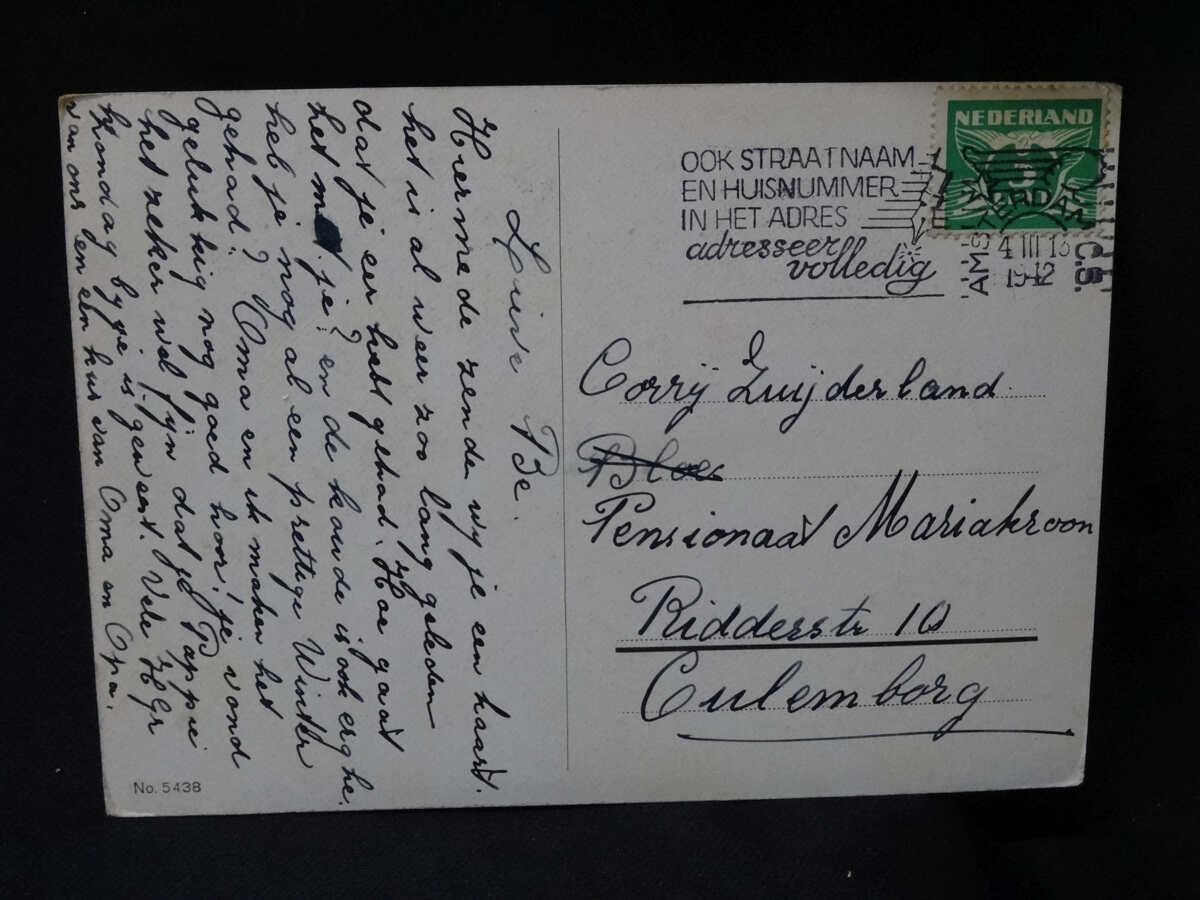 Lieve Be.
Hiermede zenden wy je een kaart.
het is al weer zoo lang geleden
dat je eer hebt gehad. Hoe gaat
het m t je? en de koude is ook erg he.
heb je nog al een prettige Winter
gehad? Oma en ik maken het
gelukkig nog goed hoor! je vond
het zeker wel fyn dat je Pappie
Zondag by je is geweest. Vele Hgr
van ons en een kus van Oma en Opa.
No. 5438
NEDERLAND
5
OOK STRAATNAAM
EN HUISNUMMER
IN HET ADRES
adresseer
volledig
AMSTERDAM C.S.
4 III 13
1942
Corrÿ Zuijderland
Pensionaat Mariakroon
Ridderstr 10
Culemborg